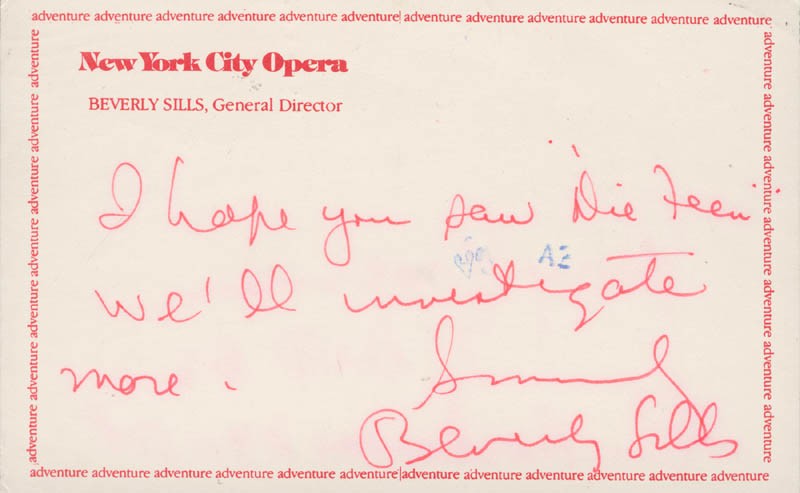 adventure adventure adventure adventure adventure adventure adventure adventure adventure adventure adventure adventure
New York City Opera
BEVERLY SILLS, General Director
I hope you saw "Die Feen"
we'll investigate
more. Sincerely
Beverly Sills
adventure adventure adventure adventure adventure adventure adventure
adventure adventure adventure adventure adventure adventure adventure
adventure adventure adventure adventure adventure adventure adventure adventure adventure adventure adventure adventure